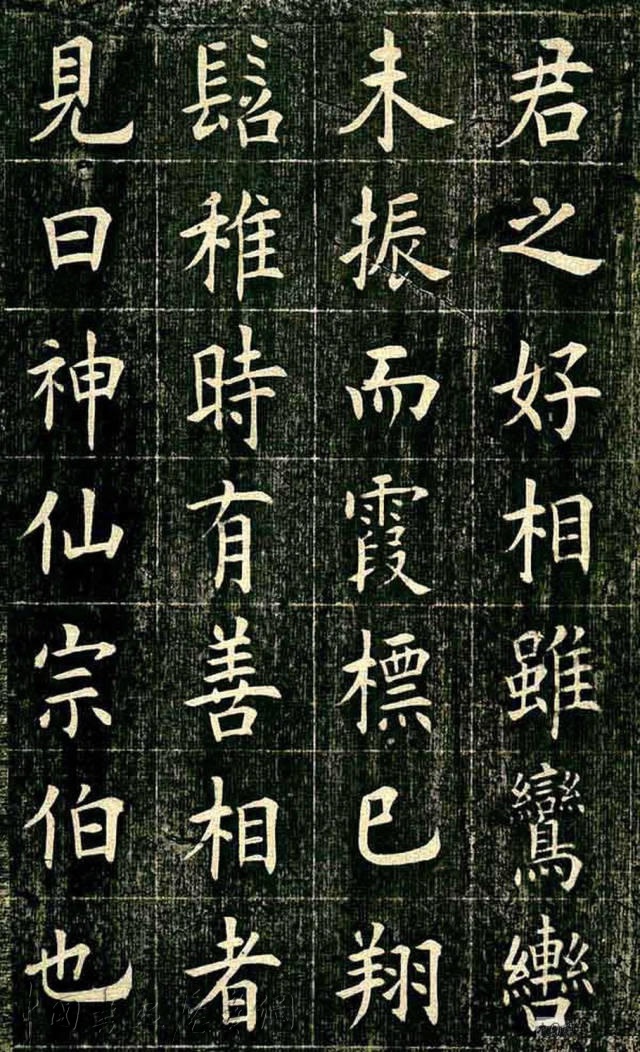 君之好相雖鸞轡
未振而霞標巳翔
髫稚時有善相者
見曰神仙宗伯也